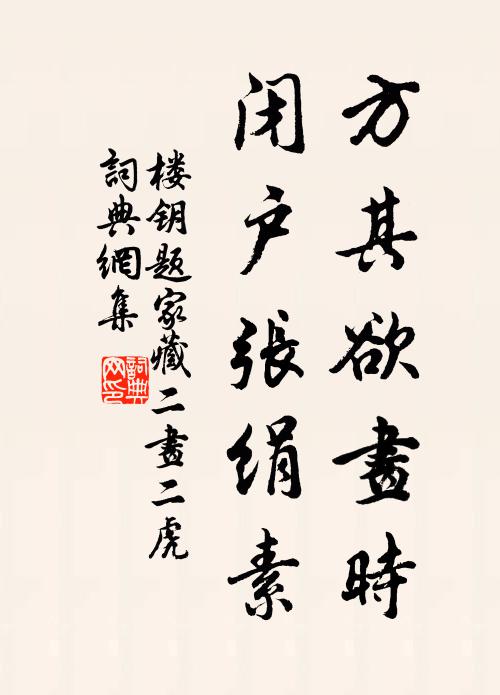 方其欲畫時
闭户張絹素
楼钥题家藏二畫二虎
詞典網集
詞典网印